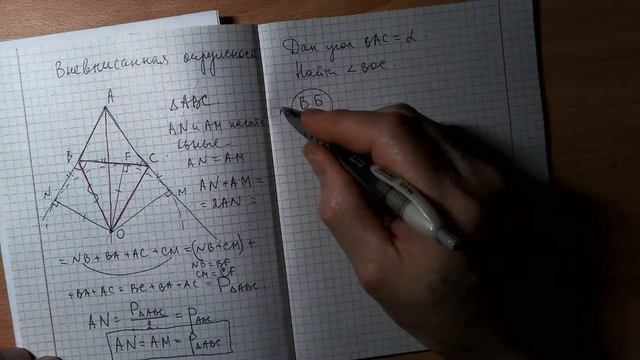 Вневписанная окружность
A
B
F
C
N
M
O
△ABC
AN и AM касате
льные
AN = AM
AN + AM =
= 2AN =
= NB + BA + AC + CM = (NB + CM) +
NB = BF
CM = CF
+ BA + AC = BC + BA + AC = P△ABC.
AN = P△ABC / 2 = pABC
AN = AM = p△ABC
Дан угол BAC = α.
Найти ∠BOC.
В Б